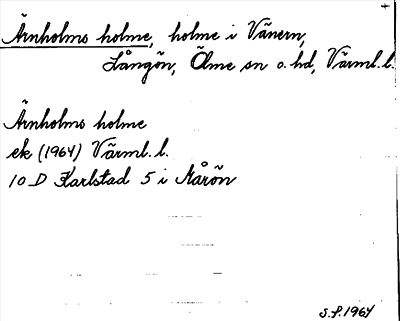 Ärnholms holme, holme i Vänern,
Långön, Ölme sn o. hd, Värml. l.
Ärnholms holme
ek (1964) Värml. l.
10 D Karlstad 5 i Åårön
S.P. 1964